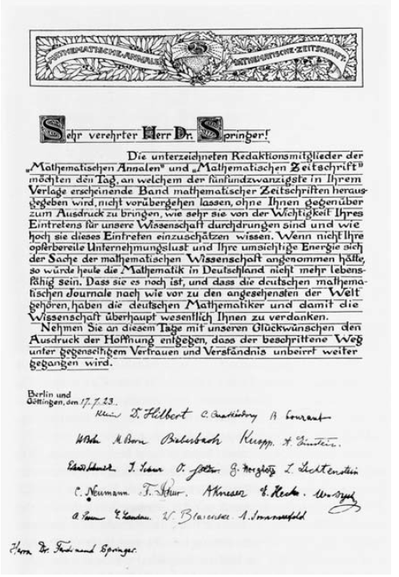 MATHEMATISCHE·ANNALEN
MATHEMATISCHE·ZEITSCHRIFT
Sehr verehrter Herr Dr. Springer!
Die unterzeichneten Redaktionsmitglieder der
„Mathematischen Annalen" und „Mathematischen Zeitschrift"
möchten den Tag, an welchem der fünfundzwanzigste in Ihrem
Verlage erscheinende Band mathematischer Zeitschriften heraus-
gegeben wird, nicht vorübergehen lassen, ohne Ihnen gegenüber
zum Ausdruck zu bringen, wie sehr sie von der Wichtigkeit Ihres
Eintretens für unsere Wissenschaft durchdrungen sind und wie
hoch sie dieses Eintreten einzuschätzen wissen. Wenn nicht Ihre
opferbereite Unternehmungslust und Ihre umsichtige Energie sich
der Sache der mathematischen Wissenschaft angenommen hätte,
so würde heute die Mathematik in Deutschland nicht mehr lebens-
fähig sein. Dass sie es noch ist, und dass die deutschen mathema-
tischen Journale nach wie vor zu den angesehensten der Welt
gehören, haben die deutschen Mathematiker und damit die
Wissenschaft überhaupt wesentlich Ihnen zu verdanken.
Nehmen Sie an diesem Tage mit unseren Glückwünschen den
Ausdruck der Hoffnung entgegen, dass der beschrittene Weg
unter gegenseitigem Vertrauen und Verständnis unbeirrt weiter
gegangen wird.
Berlin und
Göttingen, den 17.7.23.
Klein D. Hilbert C. Carathéodory R Courant
M. Born Bieberbach Knopp A. Einstein
I. Schur O. Hölder L. Lichtenstein
C. Neumann F. Schur A Kneser E. Hecke
E. Landau W. Blaschke A. Sommerfeld
Herrn Dr. Ferdinand Springer.